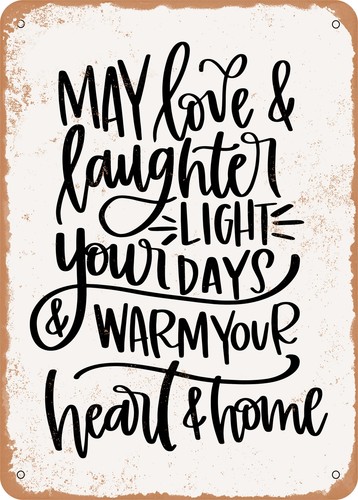 MAY love &
laughter
LIGHT
your DAYS
& WARM YOUR
heart & home